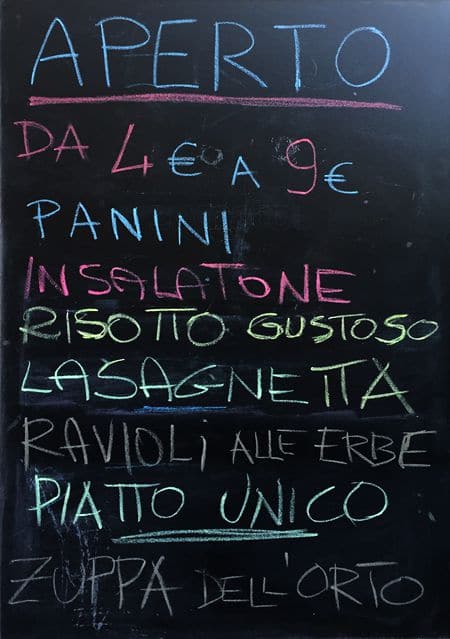 APERTO
DA 4€ A 9€
PANINI
INSALATONE
RISOTTO GUSTOSO
LASAGNETTA
RAVIOLi ALLE ERBE
PIATTO UNICO
ZUPPA DELL'ORTO